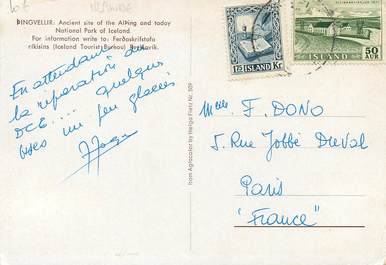 ISLANDE
ÞINGVELLIR: Ancient site of the Alþing and today
National Park of Iceland.
For information write to: Ferðaskrifstofa
ríkisins (Iceland Tourist Bureau) Reykjavík.
En attendant
la réparation du
DC6.... quelques
bises un peu glacées
from Agfacolor by Helga Fietz Nr. 509
1.75 ISLAND Kr
ISLAND
50
AUR
Mr. F. DONO
5. Rue Jobbé Duval
Paris
"France"